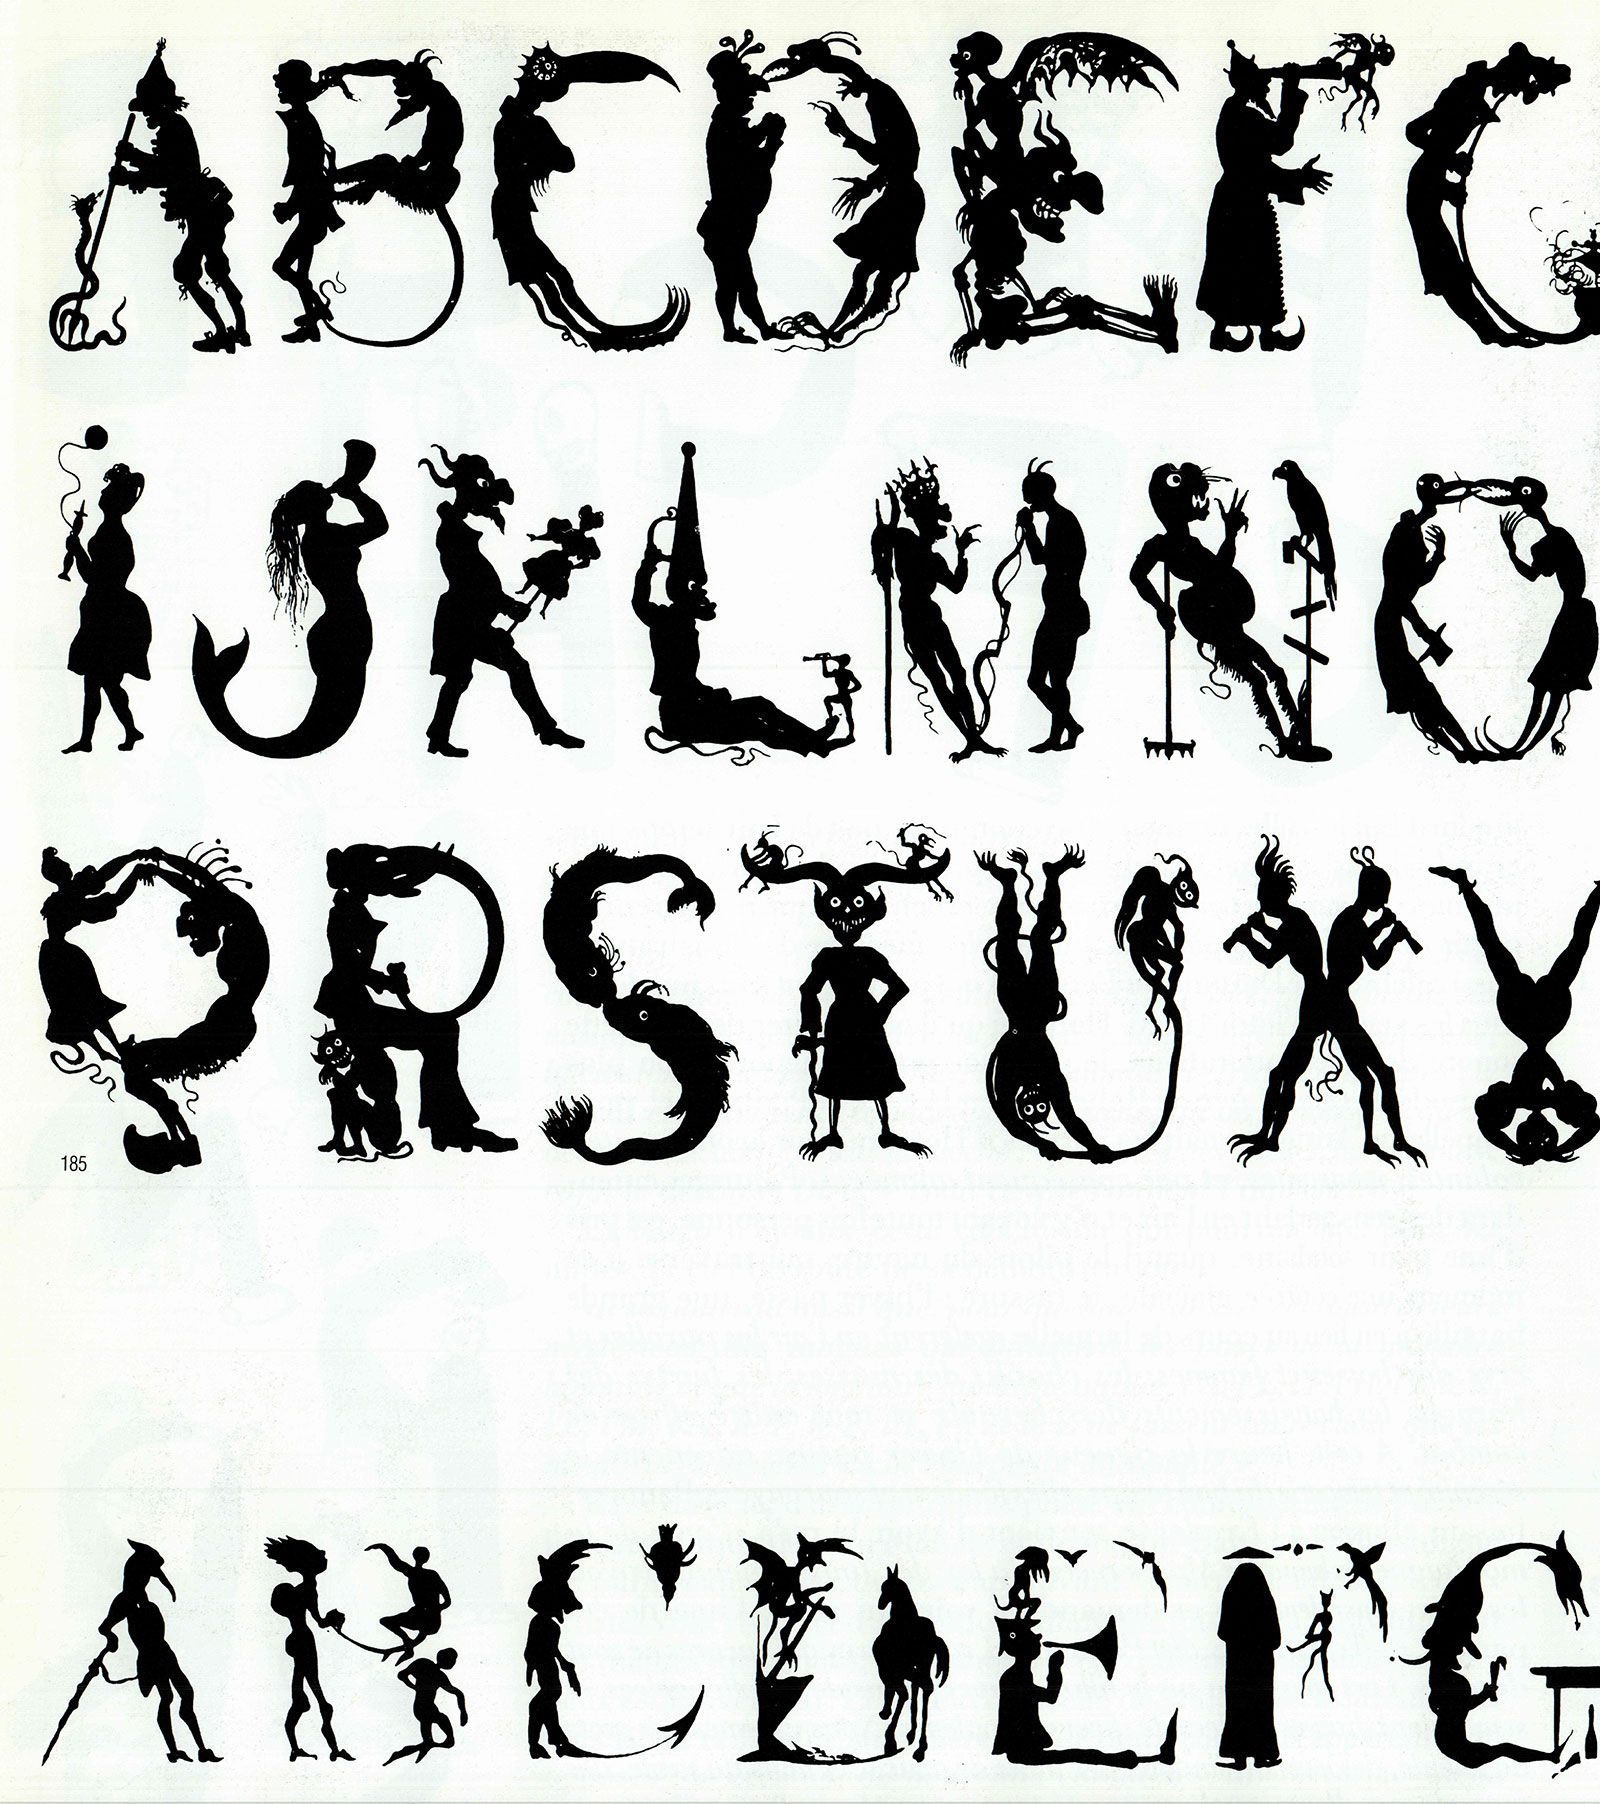 A B C D E F G
I J K L M N O
Q R S T U X Y
185
A B C D E F G